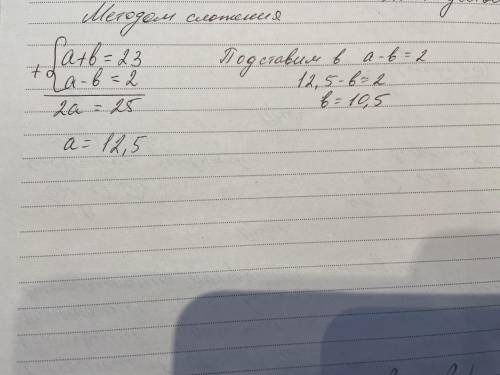 Методом сложения
+{a+b=23
a-b=2
2a=25
a=12,5
Подставим в a-b=2
12,5-b=2
b=10,5